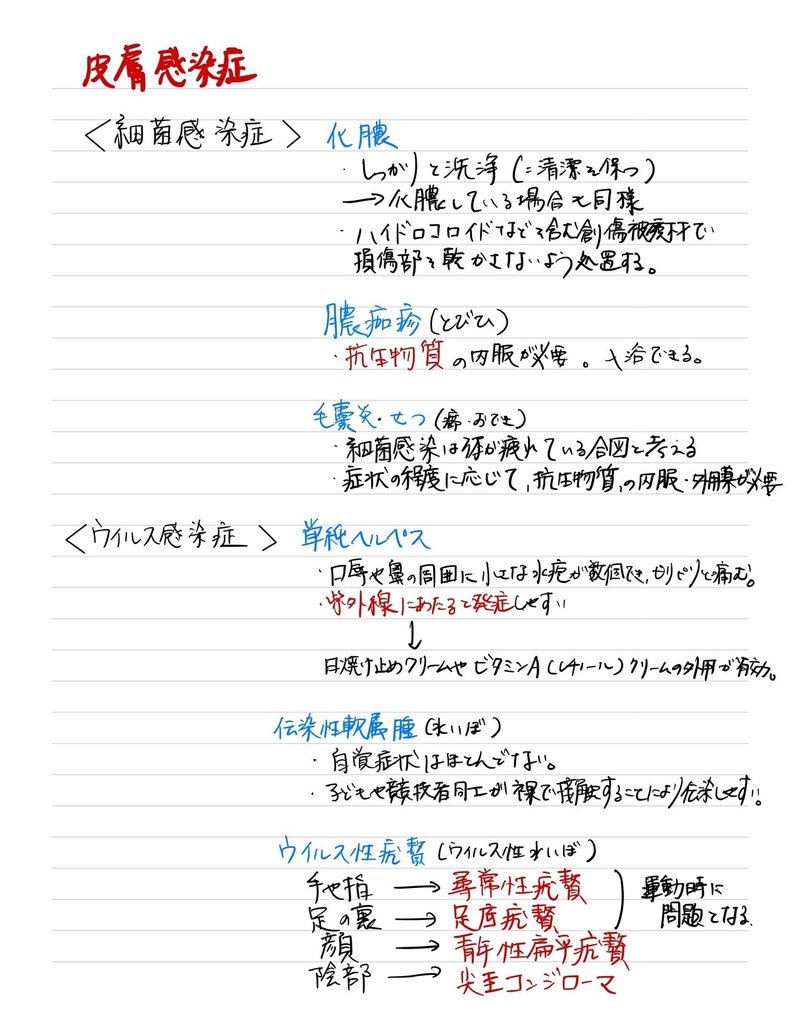 皮膚感染症
<細菌感染症> 化膿
・しっかりと洗浄(=清潔を保つ)
→化膿している場合も同様
・ハイドロコロイドなどを含む創傷被覆材で
損傷部を乾かさないよう処置する。
膿痂疹(とびひ)
・抗生物質の内服が必要。 治できる。
毛嚢炎・せつ(癤・おでき)
・細菌感染は体が疲れている合図と考える
・症状の程度に応じて、抗生物質の内服・外用が必要
<ウイルス感染症> 単純ヘルペス
・口唇や鼻の周囲に小さな水疱が数個でき、ピリピリと痛む。
・紫外線にあたると発症しやすい
↓
日焼け止めクリームやビタミンA(レチノール)クリームの外用が有効。
伝染性軟属腫(水いぼ)
・自覚症状はほとんどない。
・子どもや競技者同士が裸で接触することにより伝染しやすい。
ウイルス性疣贅(ウイルス性水いぼ)
手や指 → 尋常性疣贅
足の裏 → 足底疣贅
運動時に
問題となる
顔 → 青年性扁平疣贅
陰部 → 尖圭コンジローマ